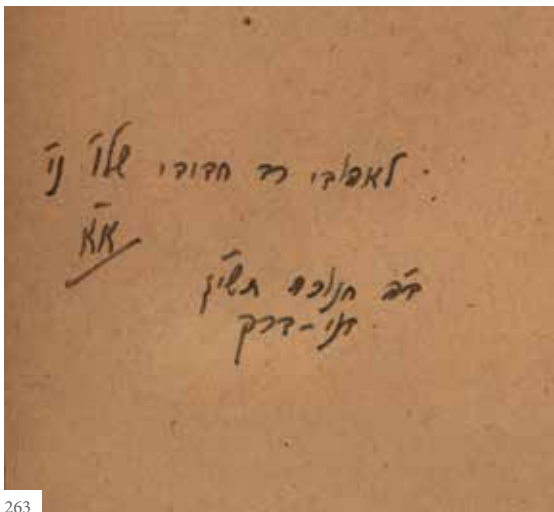 לאהובי רב חדודי שלו' ני'
א"א
ב"ה חנוכה תשי"ז
בני-ברק
263